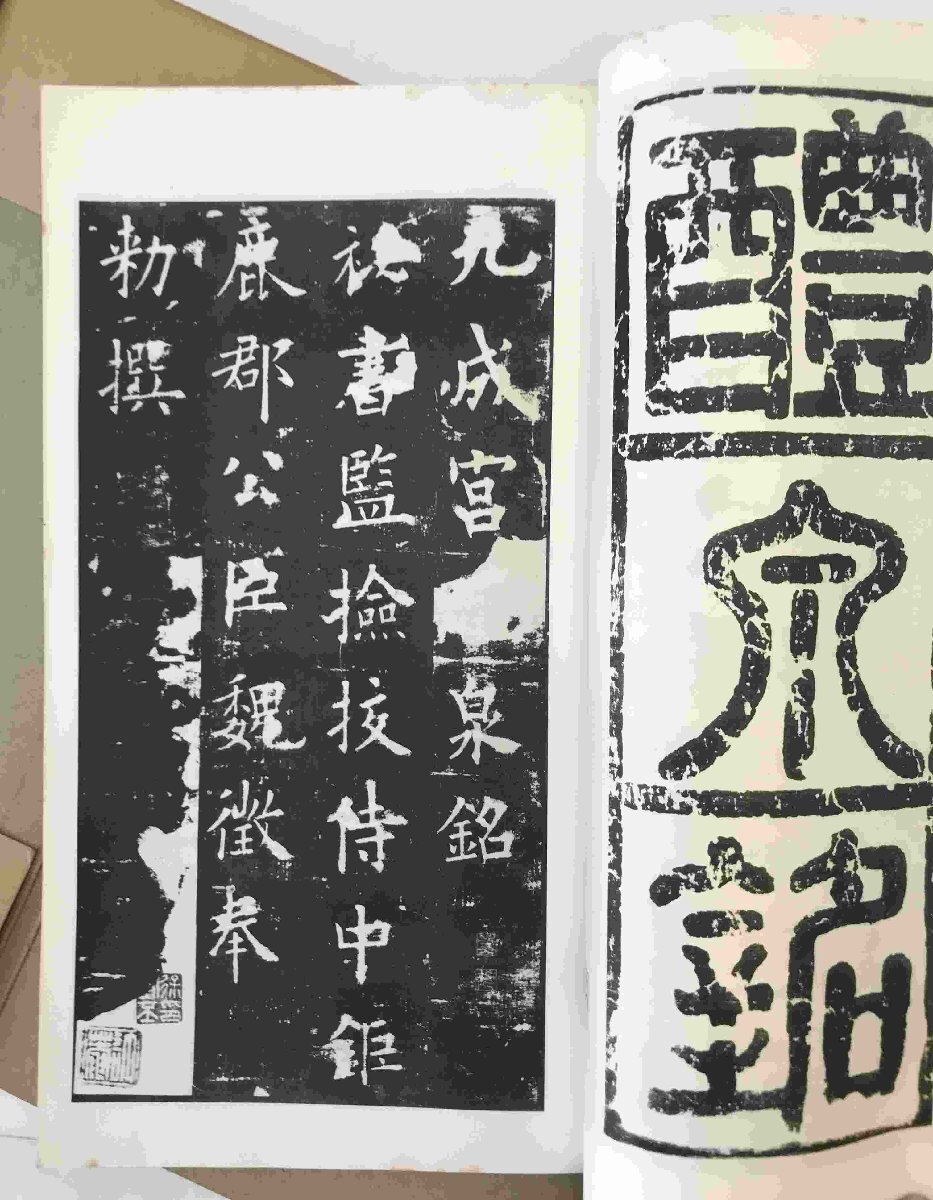 醴泉銘
九成宮泉銘
祕書監撿挍侍中鉅
鹿郡公臣魏徵奉
勑撰